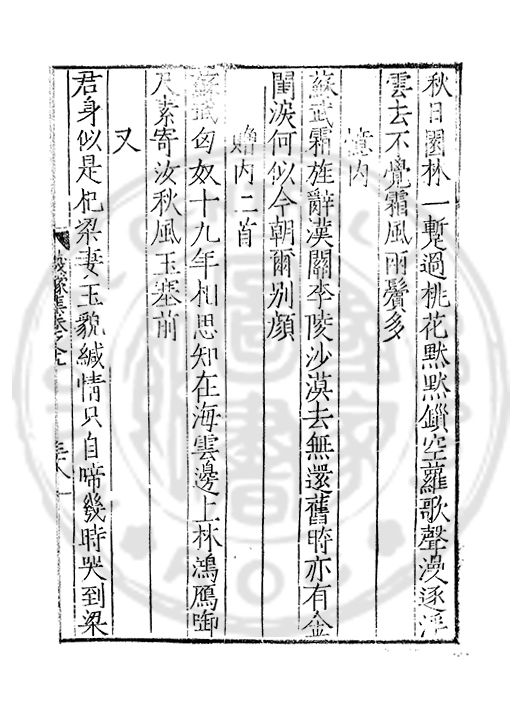 秋日園林一蹔過桃花黙黙鎻空蘿歌聲漫逐浮
雲去不覺霜風兩鬢多
憶内
蘇武霜旌辭漢關李陵沙漠去無還舊時亦有金
閨淚何似今朝爾别顔
贈内二首
蘇武匈奴十九年相思知在海雲邊上林鴻鴈啣
尺素寄汝秋風玉塞前
又
君身似是杞梁妻玉貌緘情只自啼幾時哭到梁
集卷之九
三八